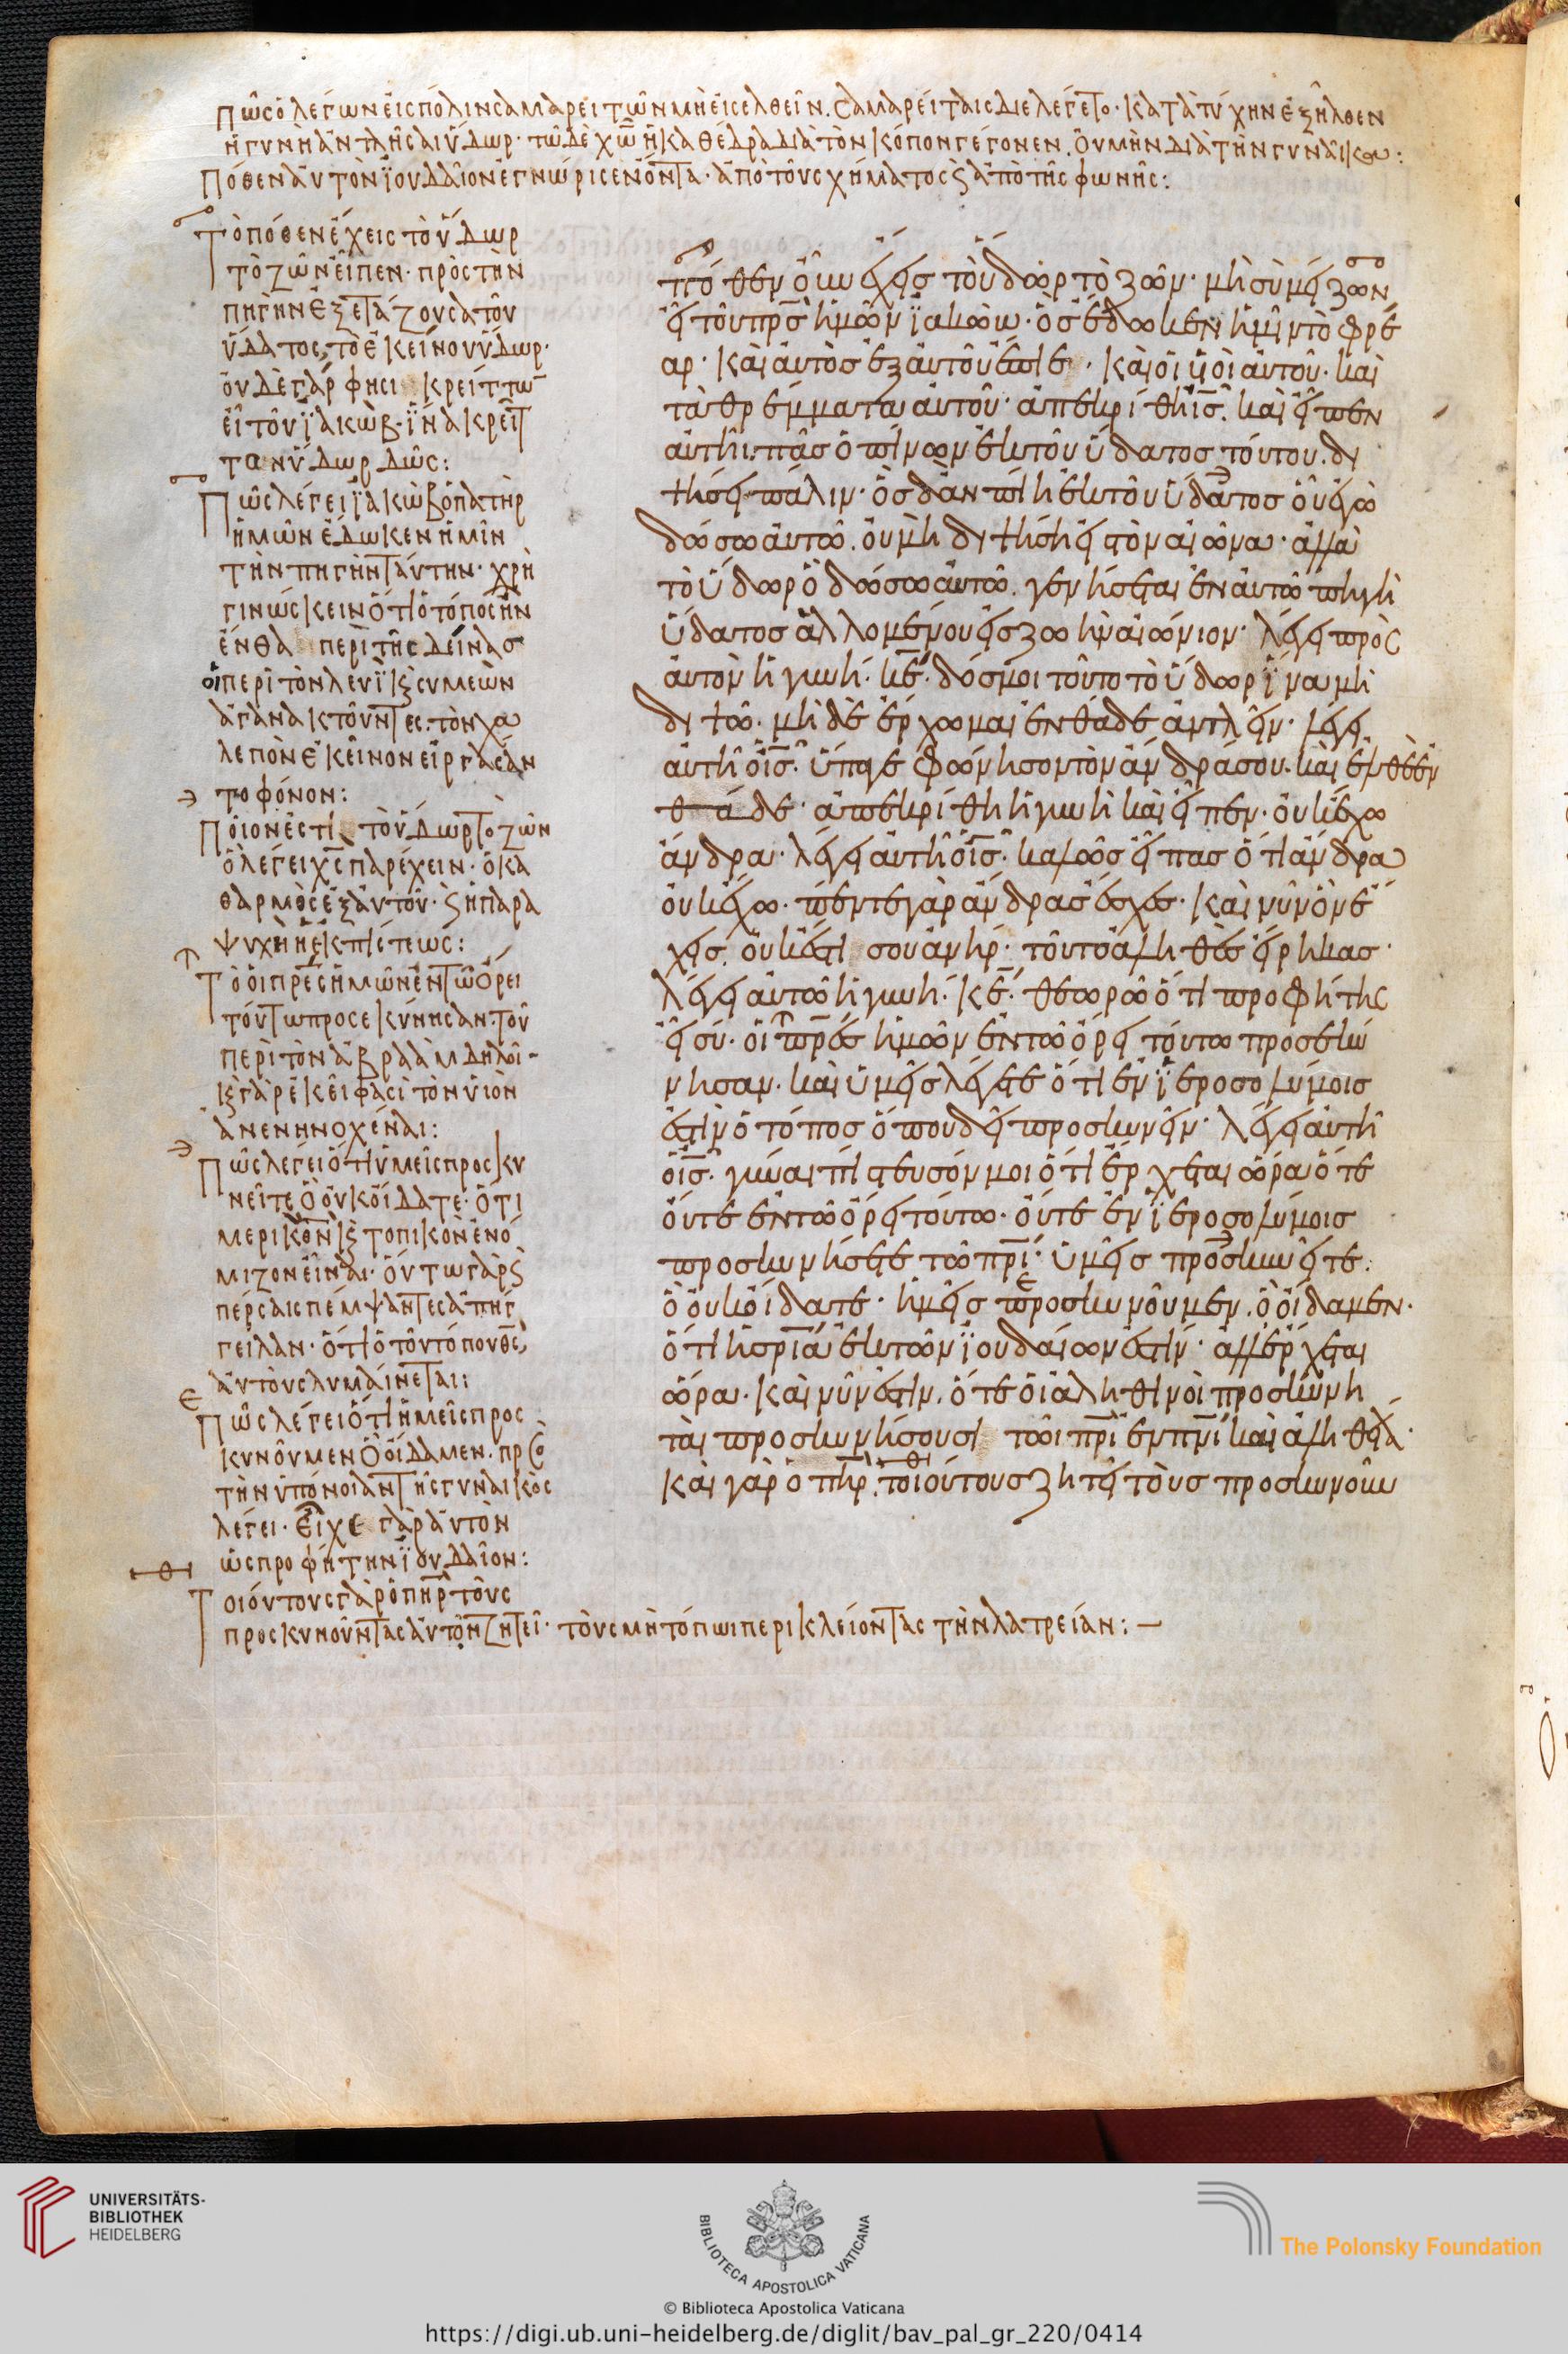 Πῶς ὁ λέγων εἰς πόλιν σαμαρειτῶν μὴ εἰσελθεῖν. σαμαρείταις διελέγετο· κατὰ τύχην ἐξῆλθεν
ἡ γυνὴ ἀντλῆσαι ὕδωρ· τῶ δὲ χ̅ω̅ ἡ καθέδρα διὰ τὸν κόπον γέγονεν. οὐ μὴν διὰ τὴν γυναῖκα:
Πόθεν αὐτὸν ϊουδαῖον ἐγνώρισεν ὄντα· ἀπὸ τοῦ σχήματος ϗ ἀπὸ τῆς φωνῆς:
Τὸ πόθεν ἔχεις τὸ ὕδωρ
τὸ ζῶν εἶπεν· πρὸς τὴν
πηγὴν ἐξετάζουσα τοῦ
ὕδατος, τὸ ἐκείνου ὕδωρ·
οὐδὲ γάρ φησι κρείττω̅
εἶ τοῦ ϊακώβ· ἵνα κρείτ
τον ὕδωρ δῶς:
Πῶς λέγει ϊακὼβ ὁ πατὴρ
ἡμῶν ἔδωκεν ἡμῖν
τὴν πηγὴν ταύτην· χρὴ
γινώσκειν ὅτι ὁ τόπος ἦν
ἔνθα περὶ τῆς δείνας
οἱ περὶ τὸν λευῒ ϗ συμεὼν
ἀγανακτοῦντες. τὸν χα
λεπὸν ἐκεῖνον εἰργάσαν
το φόνον:
Ποῖον ἐστὶ τὸ ὕδωρ τὸ ζῶν
ὃ λέγει χ̅ς̅ παρέχειν· ὁ κα
θαρμὸς ἐξ αὐτοῦ· ϗ ἡ παρὰ
ψυχῇ ἐκ πίστεως:
Τὸ οἱ πρ̅ε̅ς ἡμῶν ἐν τῶ ὄρει
τούτω προσεκύνησαν. τοὺ
περὶ τὸν ἀβραὰμ δηλοῖ-
ἐκεῖ γὰρ φασὶ τὸν υἱὸν
ἀνενηνοχέναι:
Πῶς λέγει ὅτι ὑμεῖς προσκυ
νεῖτε ὃ οὐκ οἴδατε· ὅτι
μερικὸν ϗ τοπικὸν ἐνό
μιζον εἶναι· οὕτω γὰρ ϗ
πέρσαις πέμψαντες ἀπήγ
γειλαν· ὅτι ὁ τοῦ τόπου θ̅ς̅,
αὐτοὺς λυμαίνεται:
Πῶς λέγει ὅτι ἡμεῖς προσ
κυνοῦμεν ὃ οἴδαμεν· πρὸς
τὴν ὑπόνοιαν τῆς γυναικὸς
λέγει· εἶχε γὰρ αὐτὸν
ὡς προφήτην ϊουδαῖον:
Τοιούτους γὰρ ὁ π̅η̅ρ τοὺς
προσκυνοῦντας αὐτὸν ζητεῖ· τοὺς μὴ τόπωι περικλείοντας τὴν λατρείαν: —
πόθεν οὖν ἔχεις τὸ ὕδωρ τὸ ζῶν· μὴ σὺ μείζων
εἶ τοῦ πρ̅ς̅ ἡμῶν ϊακώβ· ὃς ἔδωκεν ἡμῖν τὸ φρέ
αρ· καὶ αὐτὸς ἐξ αὐτοῦ ἔπιε· καὶ οἱ υἱοὶ αὐτοῦ· καὶ
τὰ θρέμματα αὐτοῦ· ἀπεκρίθη ι̅ς̅. καὶ εἶπεν
αὐτῆι· πᾶς ὁ πίνων ἐκ τοῦ ὕδατος τούτου. δι
ψήσει πάλιν· ὃς δ' ἂν πίη ἐκ τοῦ ὕδατος οὗ ἐγὼ
δώσω αὐτῶ. οὐ μὴ διψήση εἰς τὸν αἰῶνα· ἀλλὰ
τὸ ὕδωρ ὃ δώσω αὐτῶ. γενήσεται ἐν αὐτῶ πηγὴ
ὕδατος ἁλλομένου εἰς ζωὴν αἰώνιον· λέγει πρὸς
αὐτὸν ἡ γυνή. κ̅ε̅. δός μοι τοῦτο τὸ ὕδωρ ἵνα μὴ
διψῶ. μὴ δὲ ἔρχωμαι ἐνθάδε ἀντλεῖν· λέγει
αὐτῆ ὁ ι̅ς̅. ὕπαγε φώνησον τὸν ἄνδρα σου. καὶ ἐλθὲ ἐν
θάδε· ἀπεκρίθη ἡ γυνὴ καὶ εἶπεν· οὐκ ἔχω
ἄνδρα· λέγει αὐτῆ ὁ ι̅ς̅. καλῶς εἶπας ὅτι ἄνδρα
οὐκ ἔχω. πέντε γὰρ ἄνδρας ἔσχες. καὶ νῦν ὃν ἔ
χεις. οὐκ ἔστι σου ἀνήρ· τοῦτο ἀληθὲς εἴρηκας·
λέγει αὐτῶ ἡ γυνή. κ̅ε̅. θεωρῶ ὅτι προφήτης
εἶ σύ. οἱ πρ̅ε̅ς ἡμῶν ἐν τῶ ὄρει τούτω προσεκύ
νησαν. καὶ ὑμεῖς λέγετε ὅτι ἐν ϊεροσολύμοις
ἐστὶν ὁ τόπος ὅπου δεῖ προσκυνεῖν· λέγει αὐτῆ
ὁ ι̅ς̅. γύναι πίστευσόν μοι ὅτι ἔρχεται ὥρα ὅτε
οὔτε ἐν τῶ ὄρει τούτω. οὔτε ἐν ϊεροσολύμοις
προσκυνήσετε τῶ πρ̅ι̅· ὑμεῖς προσκυνεῖτε.
ὃ οὐκ οἴδατε· ἡμεῖς προσκυνοῦμεν. ὃ οἴδαμεν·
ὅτι ἡ σρ̅ι̅α ἐκ τῶν ϊουδαίων ἐστίν· ἀλλ' ἔρχεται
ὥρα. καὶ νῦν ἐστιν. ὅτε οἱ ἀληθινοὶ προσκυνη
ταὶ προσκυνήσουσι τῶι πρ̅ι̅ ἐν πν̅ι̅ καὶ ἀληθεία·
καὶ γὰρ ὁ π̅η̅ρ. τοιούτους ζητεῖ τοὺς προσκυνοῦν
UNIVERSITÄTS-
BIBLIOTHEK
HEIDELBERG
BIBLIOTECA APOSTOLICA VATICANA
The Polonsky Foundation
© Biblioteca Apostolica Vaticana
https://digi.ub.uni-heidelberg.de/diglit/bav_pal_gr_220/0414